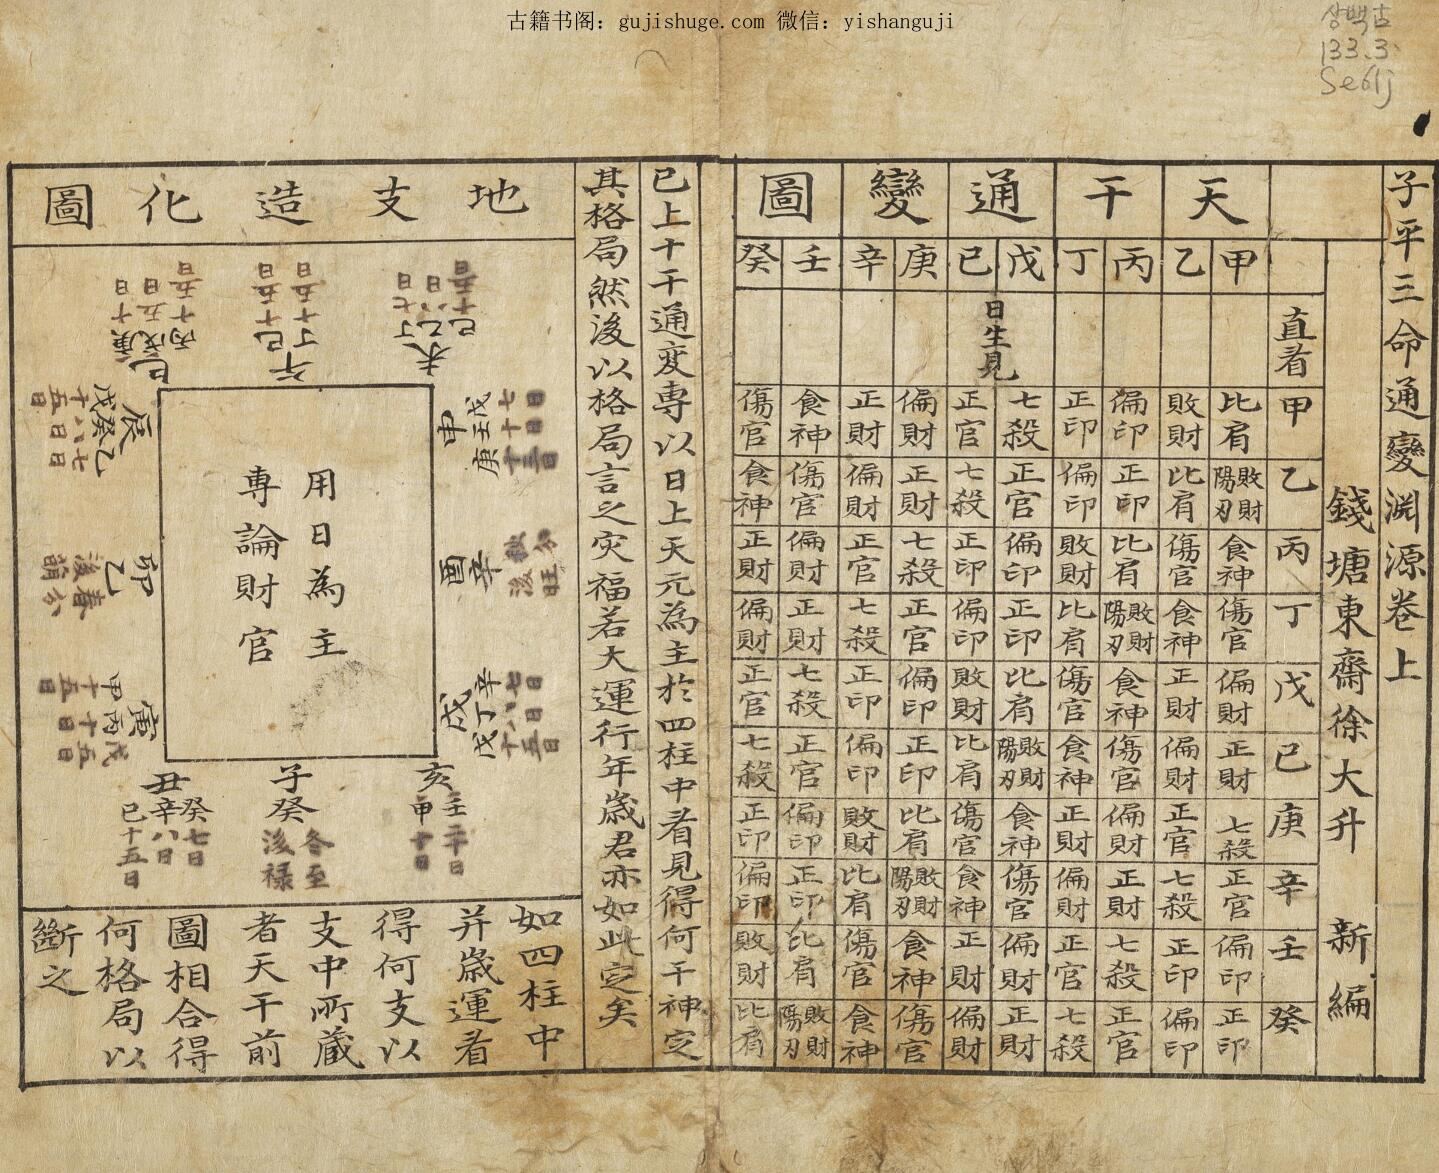 古籍书阁：gujishuge.com 微信：yishanguji
상백古
133.3
Se61j
子平三命通變淵源卷上
錢塘東齋徐大升 新編
天干通變圖
甲 乙 丙 丁 戊 己 庚 辛 壬 癸
直看
日生見
甲 比肩 敗財 偏印 正印 七殺 正官 偏財 正財 食神 傷官
乙 敗財陽刃 比肩 正印 偏印 正官 七殺 正財 偏財 傷官 食神
丙 食神 傷官 比肩 敗財 偏印 正印 七殺 正官 偏財 正財
丁 傷官 食神 敗財陽刃 比肩 正印 偏印 正官 七殺 正財 偏財
戊 偏財 正財 食神 傷官 比肩 敗財 偏印 正印 七殺 正官
己 正財 偏財 傷官 食神 敗財陽刃 比肩 正印 偏印 正官 七殺
庚 七殺 正官 偏財 正財 食神 傷官 比肩 敗財 偏印 正印
辛 正官 七殺 正財 偏財 傷官 食神 敗財陽刃 比肩 正印 偏印
壬 偏印 正印 七殺 正官 偏財 正財 食神 傷官 比肩 敗財
癸 正印 偏印 正官 七殺 正財 偏財 傷官 食神 敗財陽刃 比肩
已上十干通変專以日上天元為主於四柱中看見得何干神定
其格局然後以格局言之灾福若大運行年歲君亦如此定矣
地支造化圖
巳
庚十日
戊五日
丙十五日
午
丁十五日
己十五日
未
丁七日
乙八日
己十五日
申
戊七日
壬十日
庚十三日
酉
辛
後
戌
辛七日
丁八日
戊十五日
亥
壬二十日
甲十日
子
癸
冬至
後禄
丑
癸七日
辛八日
己十五日
寅
戊五日
丙十日
甲十五日
卯
乙
春分
後萌
辰
乙七日
癸八日
戊十五日
用日為主
專論財官
如四柱中
并歲運看
得何支以
支中所蔵
者天干前
圖相合得
何格局以
斷之